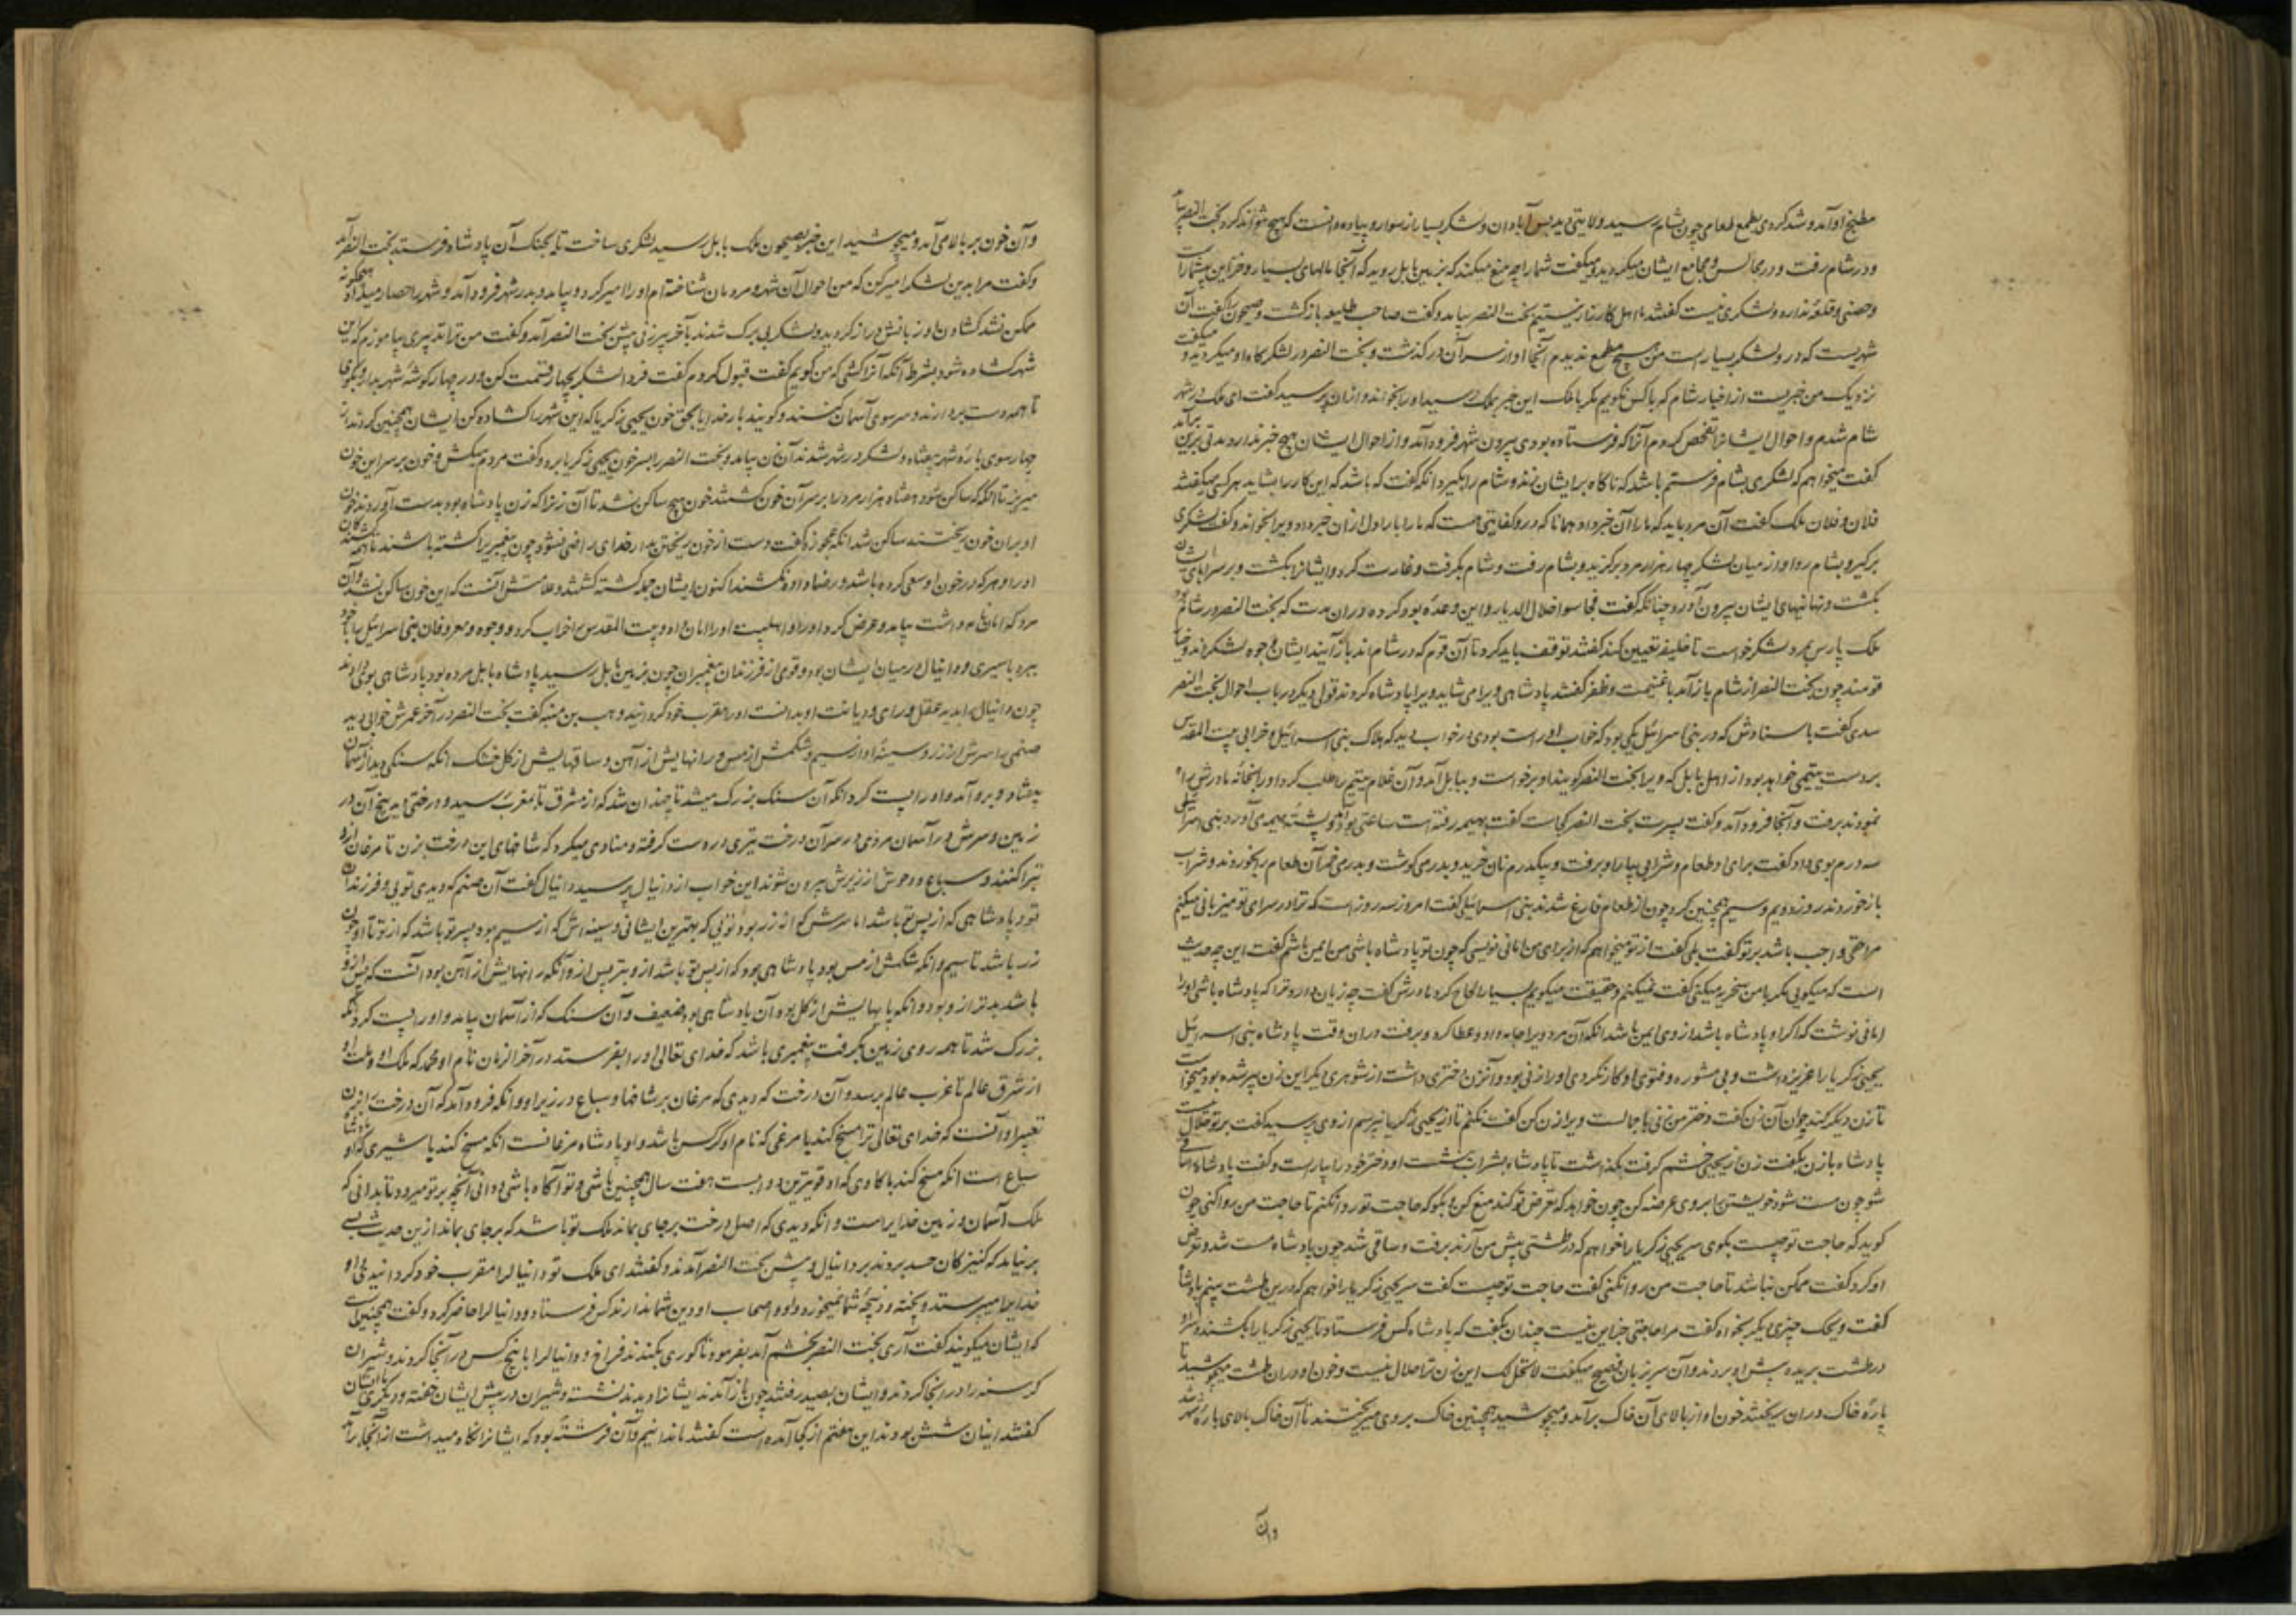 مطبخ او آمد و شد کردی بطمع طعامی چون بشام رسید ولایتی دید بس آبادان و لشکر بسیار از سوار و پیاده دانست که هیچ نتواند کرد بخت النصر بیامد
و در شام رفت و در مجالس و مجامع ایشان میگردید و میگفت شما را چه منع میکند که بزمین بابل روید که آنجا مالهای بسیار و خزاین بیشمار است
و حصنی و قلعه ندارد و لشکری نیست گفتند ما اهل کارزار نیستیم بخت النصر بیامد و گفت صاحب طلیعه باز گشت و صیحون را گفت آن
شهریست که در و لشکر بسیار است من هیچ مطمع ندیدم آنجا او از سر آن در گذشت و بخت النصر در لشکرگاه او میگردید و میگفت
نزدیک من خبریست از اخبار شام که با کس نگویم مگر با ملک این خبر بملک رسید او را بخواند و از ان پرسید گفت ای ملک در شهر
شام شدم و احوال ایشانرا تفحص کردم آنرا که فرستاده بودی بیرون شهر فرود آمد و از احوال ایشان هیچ خبر ندارد مدتی برین برآمد
گفت میخواهم که لشکری بشام فرستم باشد که ناگاه بر ایشان زند و شام را بگیرد آنگه گفت که باشد که این کار را بشاید هر کسی میگفتند
فلان و فلان ملک گفت آن مرد باید که ما را آن خبر داد همانا که در و کفایتی هست که ما را بار اول از ان خبر داد ویرا بخواند و گفت لشکری
برگیر و بشام رو او از میان لشکر چهار هزار مرد برگزید و بشام رفت و شام بگرفت و غارت کرد و ایشانرا بکشت و بر سراهای ایشان
بگشت و نهانیهای ایشان بیرون آورد چنانکه گفت فجاسوا خلال الدیار و این وعده بود کرده در ان مدت که بخت النصر در شام بود
ملک پارس بمرد لشکر خواست تا خلیفه تعیین کند گفتند توقف باید کرد تا آن قوم که در شام اند باز آیند ایشان وجوه لشکراند و خیار
قومند چون بخت النصر از شام باز آمد با غنیمت و ظفر گفتند پادشاهی ویرا می شاید ویرا پادشاه کردند قول دیگر در باب احوال بخت النصر
سدی گفت باسنادش که در بنی اسرائیل یکی بود که خواب او راست بودی در خواب دید که هلاک بنی اسرائیل و خرابی بیت المقدس
بر دست یتیمی خواهد بود از اهل بابل که ویرا بخت النصر گویند او برخواست و ببابل آمد و آن غلام یتیم را طلب کرد او را بخانه مادرش راه
نمودند برفت و آنجا فرود آمد و گفت پسرت بخت النصر کجاست گفت بهیمه رفته است ساعتی بود او پشته هیمه می آورد بنی اسرائیلی
سه درم بوی داد گفت برای ما طعام و شرابی بیار او برفت و بیکدرم نان خرید و بدرمی گوشت و بدرمی خمر آن طعام بخوردند و شراب
باز خوردند روز دویم و سیم همچنین کرد چون از طعام فارغ شدند بنی اسرائیلی گفت امروز سه روز است که ترا در سرای تو میزبانی میکنم
مرا حقی واجب باشد بر تو گفت بلی گفت از تو میخواهم که از برای من امانی نویسی که چون تو پادشاه باشی من ایمن باشم گفت این چه حدیث
است که میگویی مگر با من سخریه میکنی گفت نمیکنم و حقیقت میگویم بسیار الحاح کرد مادرش گفت چه زیان دارد ترا که پادشاه باشی او را
امانی نوشت که اگر او پادشاه باشد از وی ایمن باشد آنگه آن مرد ویرا جامه داد و عطا کرد و برفت در ان وقت پادشاه بنی اسرائیل
یحیی زکریا را عزیز داشت و بی مشوره و فتوی او کار نکردی او را زنی بود و آن زن دختری داشت از شوهری دیگر این زن پیر شده بود میخواست
تا زن دیگر کند چون آن زن گفت دختر من زنی با جمالست ویرا زن کن گفت نکنم تا از یحیی زکریا نپرسم از وی پرسید گفت بر تو حلال نیست
پادشاه بازن بگفت زن از یحیی خشم گرفت بگذاشت تا پادشاه بشراب بنشست او دختر خود را بیاراست و گفت پادشاه را ساقی
شو چون مست شود خویشتن بر وی عرضه کن چون خواهد که تعرض تو کند منع کن و بگو که حاجت تو روا نکنم تا حاجت من روا کنی چون
گوید که حاجت تو چیست بگوی سر یحیی زکریا را خواهم که در طشتی پیش من آرند برفت و ساقی شد چون پادشاه مست شد و تعرض
او کرد گفت ممکن نباشد تا حاجت من روا نکنی گفت حاجت تو چیست گفت سر یحیی زکریا را خواهم که درین طشت بینم پادشاه
گفت ویحک چیزی دیگر بخواه گفت مرا حاجتی جز این نیست چندان بگفت که پادشاه کس فرستاد تا یحیی زکریا را بکشند و سر او
در طشت بریده پیش او بردند و آن سر بزبان فصیح میگفت لا تحل لک این زن ترا حلال نیست و خون او در ان طشت میجوشید تا
پاره خاک در ان ریختند خون او از بالای آن خاک برآمد و میجوشید همچنین خاک بر وی میریختند تا آن خاک بالای باره شهر شد
و آن
و آن خون بر بالا می آمد و میجوشید این خبر بصیحون ملک بابل رسید لشکری ساخت تا بجنگ آن پادشاه فرستد بخت النصر آمد
و گفت مرا بدین لشکر امیر کن که من احوال آن شهر و مردمان شناخته ام او را امیر کرد و بیامد و بدر شهر فرود آمد و شهر را حصار میداد هیچگونه
ممکن نشد گشادن او زبانش دراز گردید و لشکر بی برگ شدند بآخر پیرزنی پیش بخت النصر آمد و گفت من ترا تدبیری بیاموزم که این
شهر گشاده شود بشرط آنکه آنرا کشی که من گویم گفت قبول کردم گفت فردا لشکر بچهار قسمت کن و در چهار گوشه شهر بدار و بگوی
تا همه دست بردارند و سر سوی آسمان کنند و گویند بار خدایا بحق خون یحیی زکریا که این شهر را گشاده کن ایشان همچنین کردند از
چهار سوی باره شهر بیفتاد و لشکر در شهر شدند آن زن بیامد و بخت النصر را بسر خون یحیی زکریا برد و گفت مردم میکش و خون بر سر این خون
میریز تا آنگه که ساکن شود هفتاد هزار مرد را بر سر آن خون کشتند خون هیچ ساکن نشد تا آن زنرا که زن پادشاه بود بدست آوردند خون
او بران خون ریختند ساکن شد آنگه عجوزه گفت دست از خون ریختن بدار خدای راضی نشود چون پیغمبری را کشته باشند تا همه کشندگان
او را و هر که در خون او سعی کرده باشد و رضا داده نکشند اکنون ایشان جمله کشته گشتند و علامتش آنست که این خون ساکن شد و آن
مرد که امان نامه داشت بیامد و عرض کرد او را و اهلبیت او را امان داد و بیت المقدس را خراب کرد و وجوه و معروفان بنی اسرائیل با خود
ببرد باسیری و دانیال در میان ایشان بود و قوی از فرزندان پیغمبران چون بزمین بابل رسید پادشاه بابل مرده بود پادشاهی بوی دادند
چون دانیال را دید عقل و رای و دیانت او بدانست او را مقرب خود گردانید وهب بن منبه گفت بخت النصر در آخر عمرش خوابی دید
صنمی را سرش از زر و سینه او از سیم و شکمش از مس و رانهایش از آهن و ساقهایش از گل خشک آنگه سنگی دید از آسمان
بیفتاد و برو آمد و او را پست کرد آنگه آن سنگ بزرگ میشد تا چندان شد که از مشرق تا بمغرب رسید و درختی دید بیخ آن در
زمین و سرش در آسمان مردی بر سر آن درخت تبری در دست گرفته و منادی میکرد که شاخهای این درخت بزن تا مرغان ازو
تبرا کنند و سباع و وحوش از زیرش بیرون شوند این خواب از دانیال پرسید دانیال گفت آن صنم که دیدی تویی و فرزندان
تو و پادشاهی که از پس تو باشد اما سرش که از زر بود تویی که بهترین ایشانی و سینه اش که از سیم بود پسر تو باشد که از تو تا او چون
زر باشد تا سیم و آنکه شکمش از مس بود پادشاهی بود که از پس تو باشد از و بتر پس ازو آنکه رانهایش از آهن بود آنست که پس ازو
باشد بدتر از و بود و آنکه پایهایش از گل بود آن پادشاهی بود ضعیف و آن سنگ که از آسمان بیامد و او را پست کرد آنگه
بزرگ شد تا همه روی زمین بگرفت پیغمبری باشد که خدای تعالی او را بفرستد در آخر الزمان نام او محمد که ملک او و ملت او
از شرق عالم تا غرب عالم برسد و آن درخت که دیدی که مرغان بر شاخها و سباع در زیر او و آنکه فرود آمد که آن درخت را بزن
تعبیر او آنست که خدای تعالی ترا مسخ کند با مرغی که نام او کرکس باشد و او پادشاه مرغانست آنگه مسخ کند با شیری که او پادشاه
سباع است آنگه مسخ کند با گاوی که او قویترین دواب است هفت سال همچنین باشی و تو آگاه باشی و دانی آنچه بر تو میرود تا بدانی که
ملک آسمان و زمین خدایراست و آنکه دیدی که اصل درخت بر جای بماند ملک تو باشد که بر جای بماند ازین حدیث بسی
بر نیامد که حسد بردند بر دانیال و پیش بخت النصر آمدند و گفتند ای ملک تو دانیال را مقرب خود گردانیدی و او
خدای را میپرستد و پخته و ذبیحه شما نمیخورد و او و اصحاب او دین شما ندارند کس فرستاد و دانیال را حاضر کرد و گفت همچنین است
که ایشان میگویند گفت آری بخت النصر بخشم آمد بفرمود تا گوری بکندند فراخ و دانیال را با پنج کس در آنجا کردند و شیران
گرسنه را در آنجا کردند و ایشان بصید رفتند چون باز آمدند ایشانرا دیدند نشسته و شیران در پیش ایشان خفته و دیگری با ایشان
گفتند اینان شش بودند این هفتم از کجا آمده است گفتند ما ندانیم و آن فرشته بود که ایشانرا نگاه میداشت از آنجا برآمد